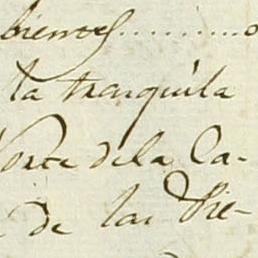 bienes..........o
la tranquila
Corte de la Ca-
de las Pie-